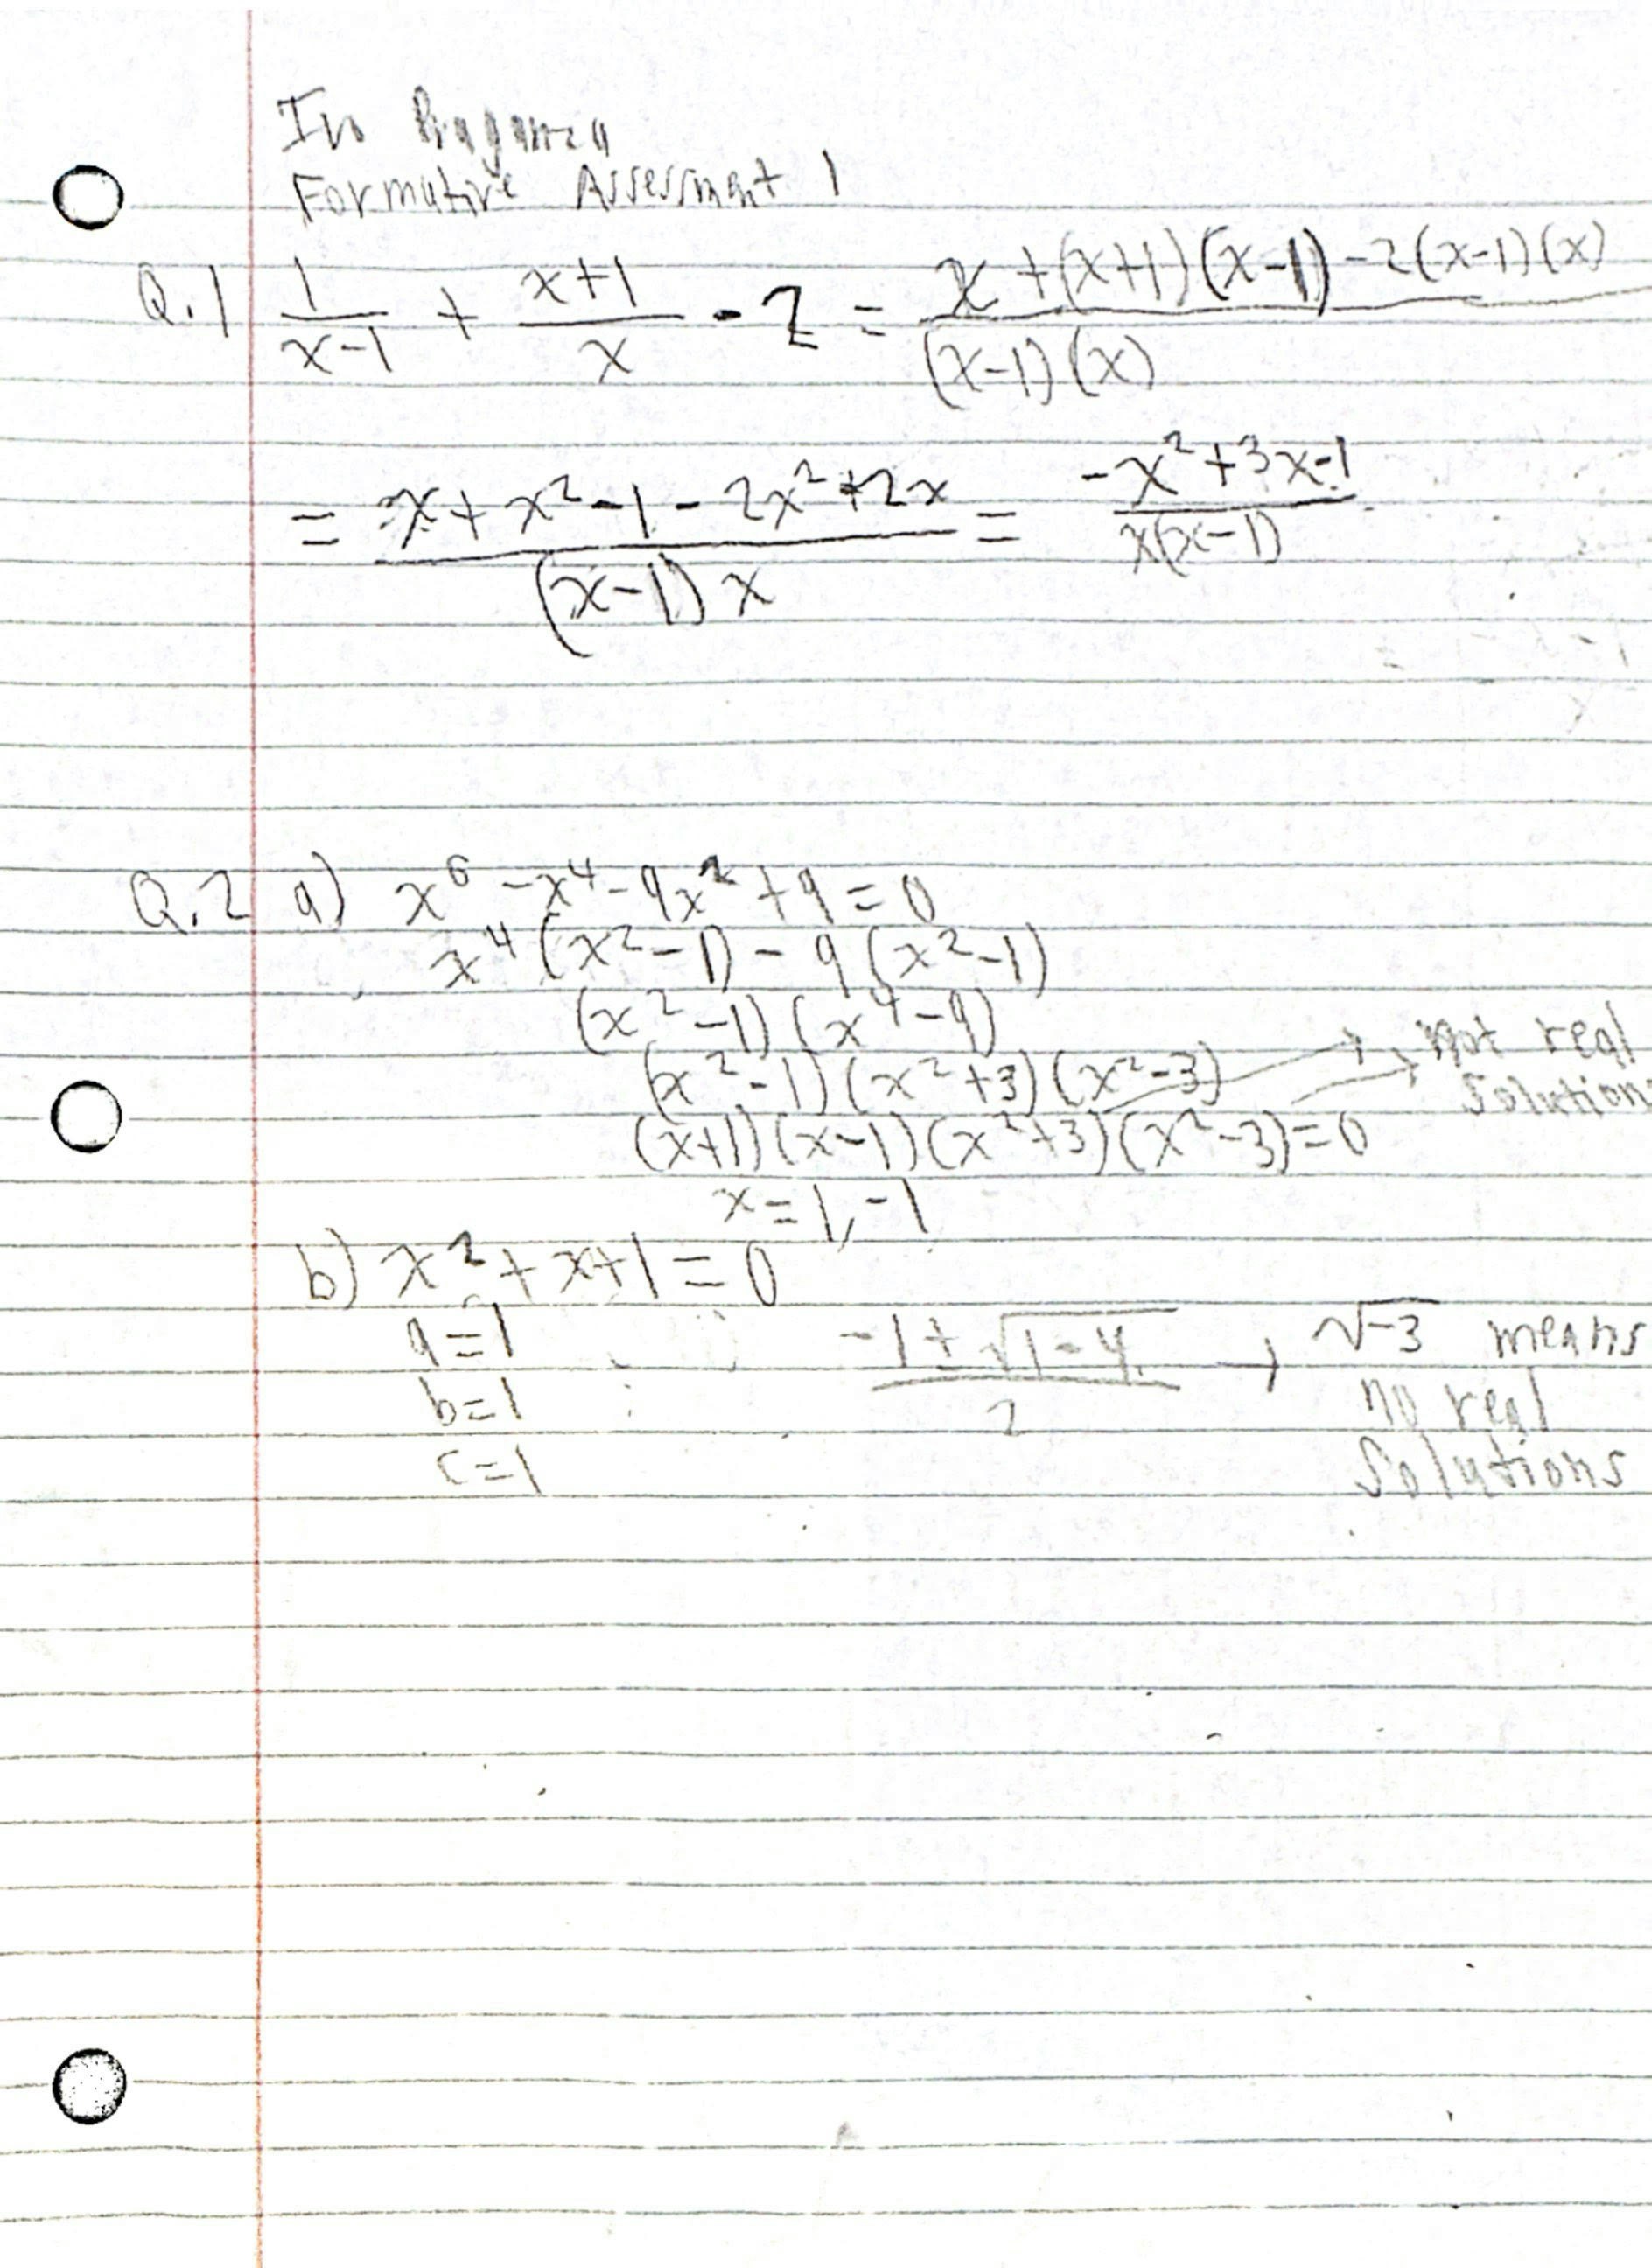 Formative Assessment 1
Q.1 1/(x-1) + (x+1)/x - 2 = (x+(x+1)(x-1)-2(x-1)(x))/((x-1)(x))
= (x+x²-1-2x²+2x)/((x-1)x) = (-x²+3x-1)/(x(x-1))
Q.2 a) x⁶-x⁴-9x²+9=0
x⁴(x²-1)-9(x²-1)
(x²-1)(x⁴-9)
(x²-1)(x²+3)(x²-3) → not real solutions
(x+1)(x-1)(x²+3)(x²-3)=0
x=1,-1
b) x²+x+1=0
a=1
b=1
c=1
(-1±√(1-4))/2 → √-3 means
no real
solutions